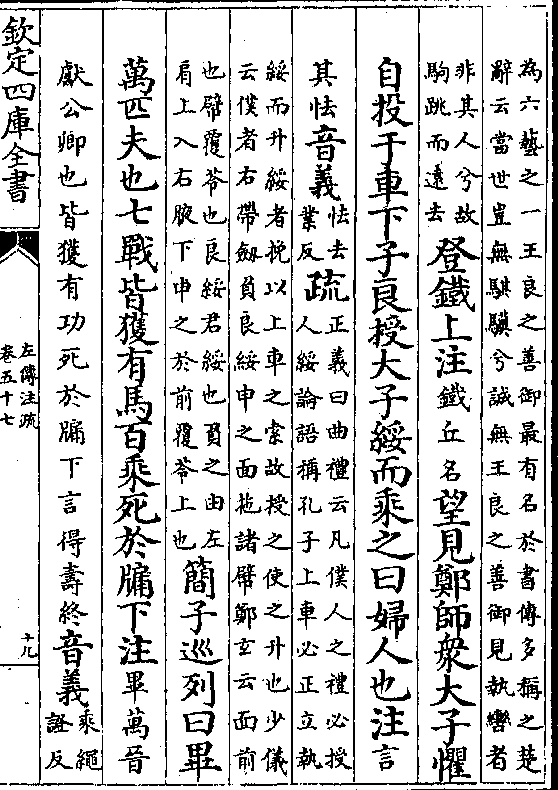 為六藝之一王良之善御最有名於書傳多稱之楚
辭云當世豈無騏驥兮誠無王良之善御見執轡者
非其人兮故
駒跳而遠去
登鐵上注鐵丘名望見鄭師衆大子懼
自投于車下子良授大子綏而乘之曰婦人也注言
其怯音義怯去
業反
疏正義曰曲禮云凡僕人之禮必授
人綏論語稱孔子上車必正立執
綏而升綏者挽以上車之索故授之使之升也少儀
云僕者右帶劔負良綏申之面拖諸幦鄭玄云面前
也幦覆笭也良綏君綏也負之由左
肩上入右腋下申之於前覆笭上也
簡子巡列曰畢
萬匹夫也七戰皆獲有馬百乘死於牖下注畢萬晉
獻公卿也皆獲有功死於牖下言得壽終音義乘繩
證反
欽定四庫全書
左傳注疏
卷五十七
十九